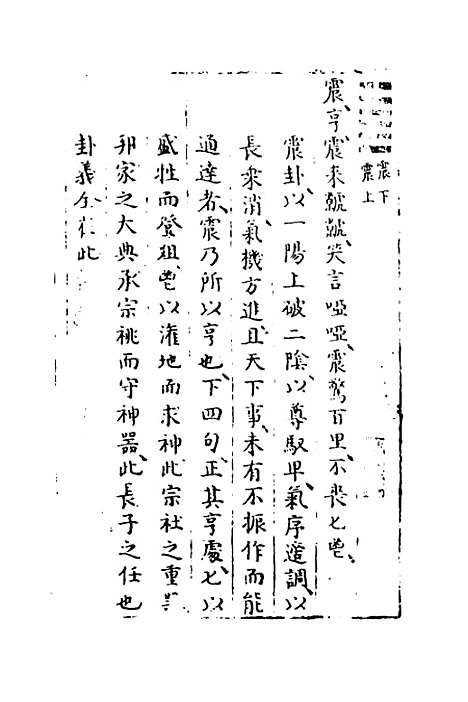 震下
震上
震亨震来虩虩笑言啞啞震驚百里不喪匕鬯
震卦以一陽上破二陰以尊馭卑氣序適調以
長乘消氣機方進且天下事未有不振作而能
通達者震乃所以亨也下四句正其亨處匕以
盛牲而登俎鬯以灌地而求神此宗社之重
邦家之大典承宗祧而守神器此長子之任也
卦義全在此